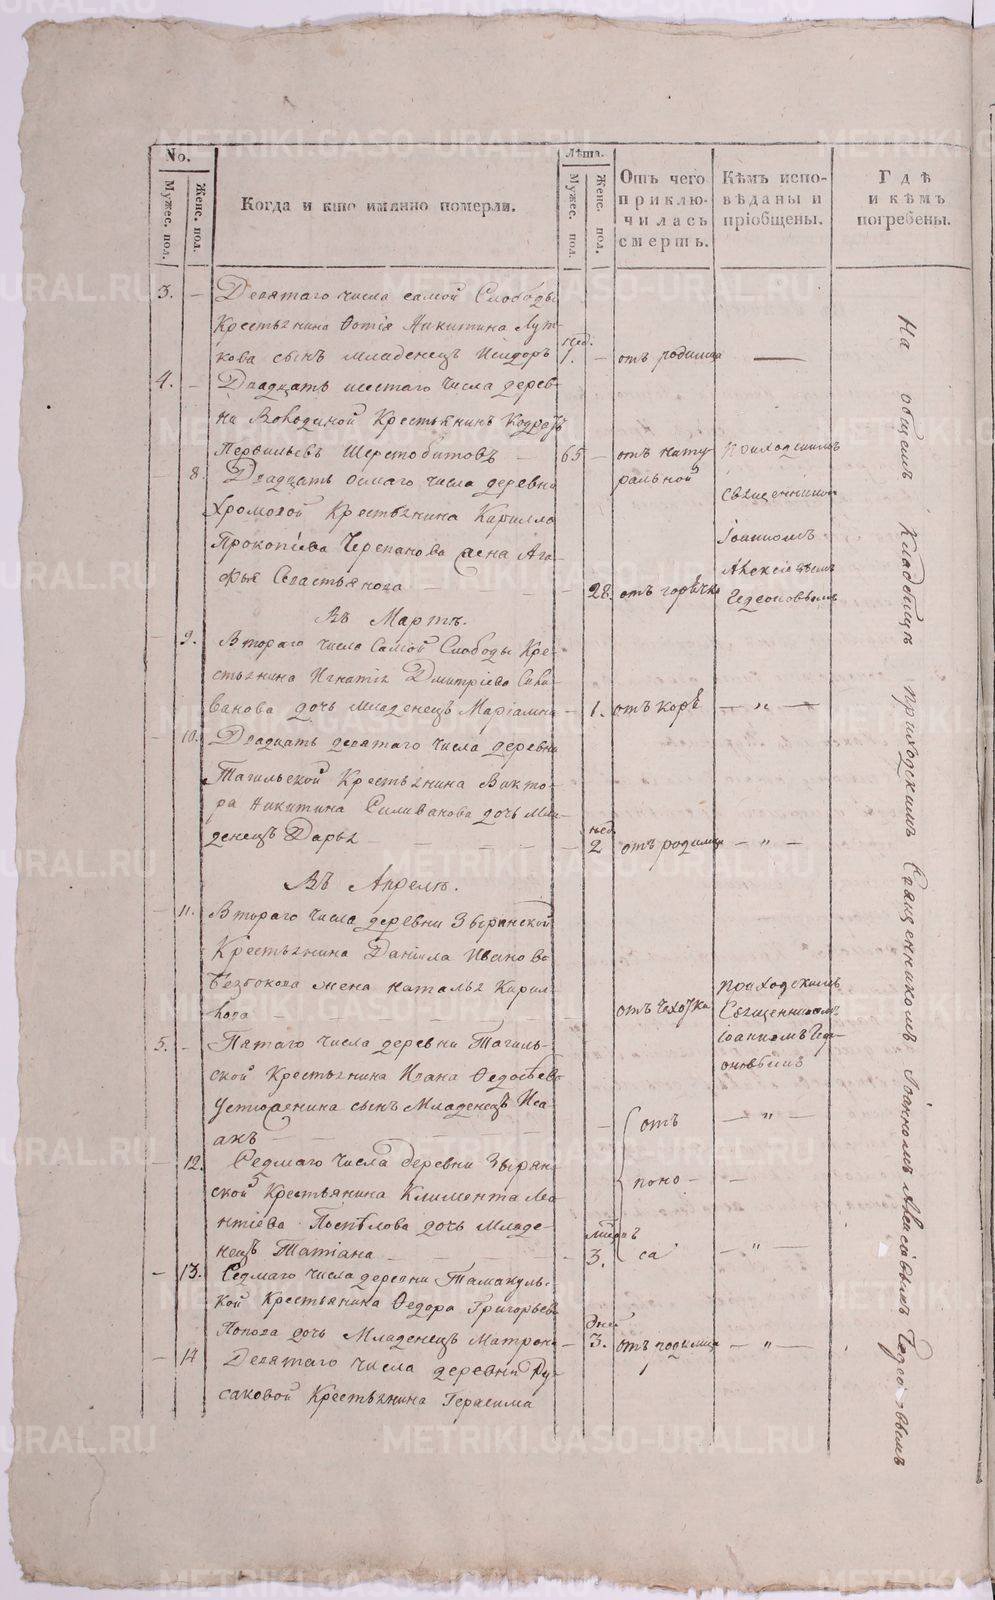 No.
Мужес. пол.
Женс. пол.
Когда и кто имянно померли.
Лѣта.
Мужес. пол.
Женс. пол.
Отъ чего приклю-чилась смерть.
Кѣмъ испо-вѣданы и пріобщены.
Гдѣ и кѣмъ погребены.
3. – Девятаго числа самой Слободы
Крестьянина Фотія Никитина Лут-
кова сынъ младенецъ Исидоръ нед. 1. – отъ родимца —
4. – Двадцать шестаго числа дерев-
ни Володиной Крестьянинъ Кодратъ
Первильевъ Шерстобитовъ – 65 – отъ нату
ральной
Приходскимъ
Священникомъ
Іоанномъ
Алексіевымъ
Гедеоновымъ
– 8. Двадцать осмаго числа деревни
Хромовой Крестьянина Карилла
Прокопіева Черепанова жена Ага-
фья Севастьянова – 28. отъ горѣчки
Въ Мартѣ.
– 9. Втораго числа самой Слободы Кре-
стьянина Игнатія Дмитріева Сили-
ванова дочь младенецъ Маріамна – 1. отъ корѣ – „ –
– 10. Двадцать девятаго числа деревни
Тагильской Крестьянина Викто-
ра Никитина Силиванова дочь мла-
денецъ Дарья – нед. 2 отъ родимца – „ –
Въ Апрелѣ.
– 11. Втораго числа деревни Зырянской
Крестьянина Даніила Иванова
Безбокова жена Наталья Карил-
лова – отъ чехотки
приходскимъ
Священникомъ
Іоанномъ Геде-
оновымъ
5. – Пятаго числа деревни Тагиль-
ской Крестьянина Ивана Федосѣева
Устюжанина сынъ младенецъ Иса-
акъ – отъ – „ –
– 12. Седмаго числа деревни Зырян-
ской Крестьянина Климента Ле-
нтіева Поспѣлова дочь младе-
нецъ Татіана – 3. поно-
са – „ –
– 13. Седмаго числа деревни Тамакуль-
кой Крестьянина Федора Григорьева
Попова дочь младенецъ Матрона – дней 3. отъ родимца – „ –
– 14 Девятаго числа деревни Ру-
саковой Крестьянина Герасима
На общемъ Кладбищѣ приходскимъ Священникомъ Іоанномъ Алексіевымъ Гедеоновымъ
METRIKI.GASO-URAL.RU